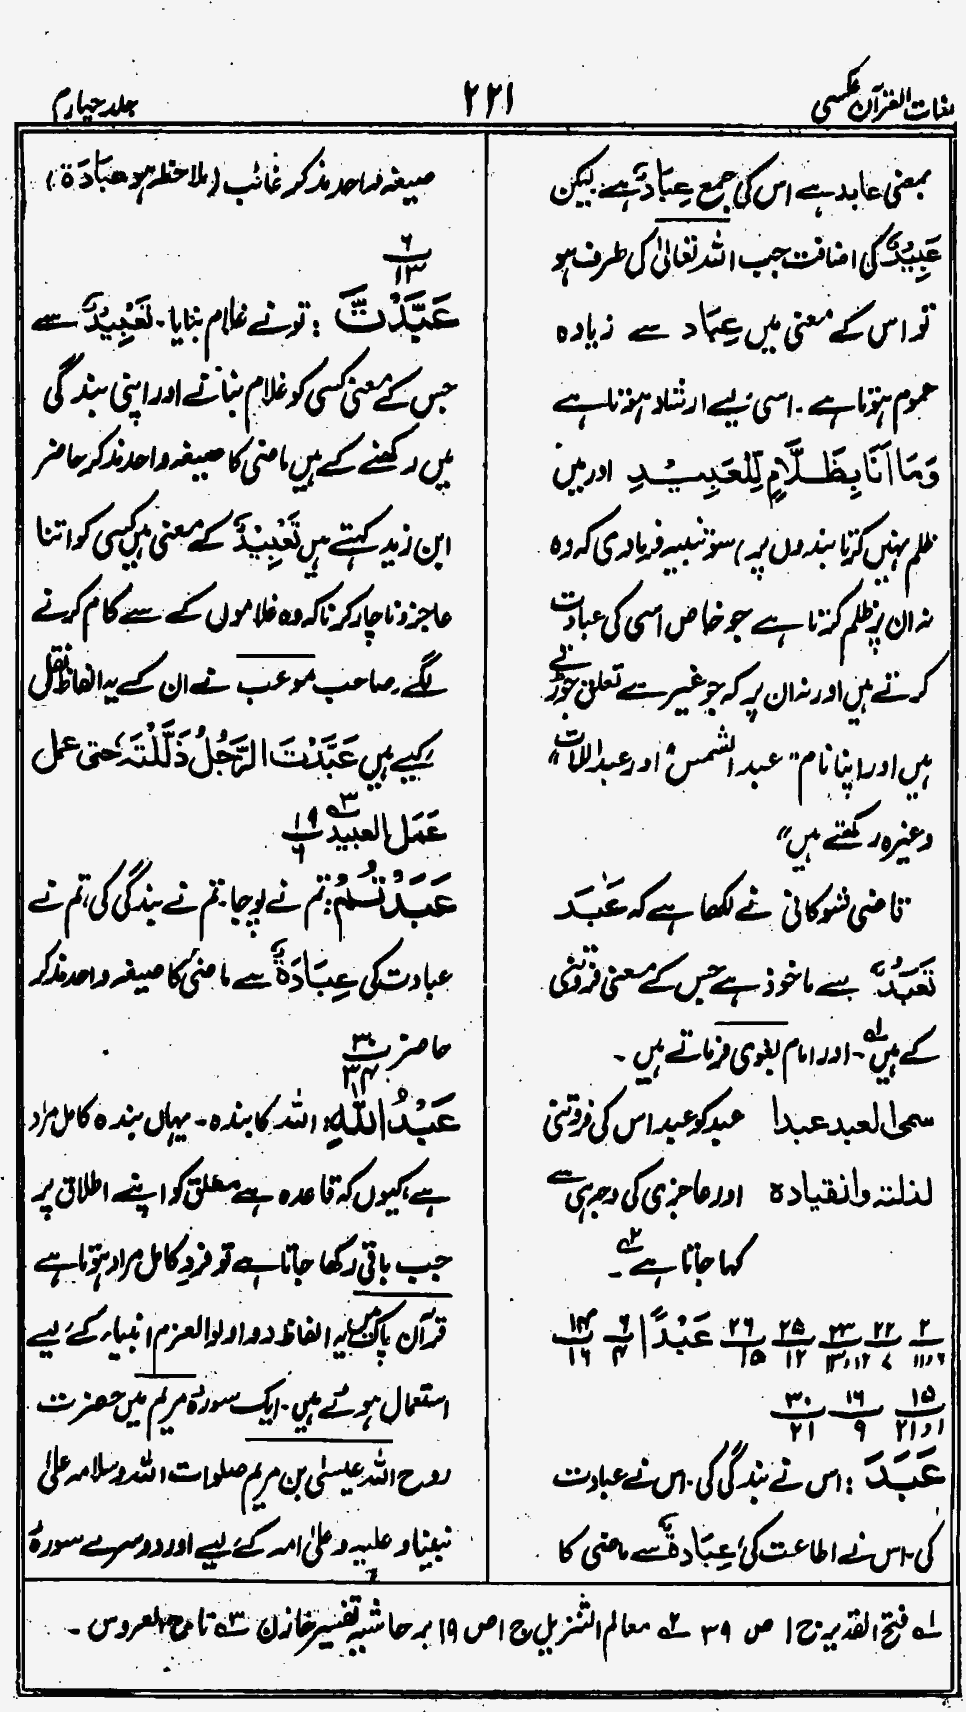 لغات القرآن عکسی
۲۲۱
جلد چہارم
بمعنی عابد ہے اس کی جمع عِبَادٌ ہے لیکن
عَبِيْدٌ کی اضافت جب اللہ تعالیٰ کی طرف ہو
تو اس کے معنی میں عِبَاد سے زیادہ
عموم ہوتا ہے ۔ اسی لیے ارشاد ہوتا ہے
وَمَا أَنَا بِظَلَّامٍ لِّلْعَبِيْدِ اور میں
ظلم نہیں کرتا بندوں پر، سو تنبیہ فرمادی کہ وہ
نہ ان پر ظلم کرتا ہے جو خاص اسی کی عبادت
کرتے ہیں اور نہ ان پر کہ جو غیر سے تعلق جوڑتے
ہیں اور اپنا نام "عبد الشمس" اور عبد اللات"
وغیرہ رکھتے ہیں"
قاضی شوکانی نے لکھا ہے کہ عَبَدَ
تَعَبُّدٌ سے ماخوذ ہے جس کے معنی فروتنی
کے ہیں لہ ۔ اور امام بغوی فرماتے ہیں ۔
سمی العبد عبدا عبد کو عبد اس کی فروتنی
لذلته وانقیاده اور عاجزی کی وجہ ہی سے
کہا جاتا ہے ۲ ۔
۲ ۲۲ ۲۳ ۲۵ ۲۶ عَبْدًا ۶ ۱۴
۶ و ۱۱ ۷ ۱۲ و ۱۳ ۱۲ ۱۵ ۴ ۱۶
۱۵ ۱۶ ۳۰
۱ و ۲۱ ۹ ۲۱
عَبَدَ : اس نے بندگی کی ۔ اس نے عبادت
کی ۔ اس نے اطاعت کی، عِبَادَةٌ سے ماضی کا
صیغہ واحد مذکر غائب (ملاحظہ ہو عِبَادَة)
۶
۱۳
عَبَّدْتَّ : تو نے غلام بنایا ۔ تَعْبِيْدٌ سے
جس کے معنی کسی کو غلام بنانے اور اپنی بندگی
میں رکھنے کے ہیں ماضی کا صیغہ واحد مذکر حاضر
ابن زید کہتے ہیں تَعْبِيْدٌ کے معنی ہیں کسی کو اتنا
عاجز و ناچار کرنا کہ وہ غلاموں کے سے کام کرنے
لگے، صاحب موعب نے ان کے یہ الفاظ نقل
کیے ہیں عَبَّدْتَ الرَّجُلُ ذَلَّلْتَهُ حتی عمل
عَمَل العبید ۳ ۱۹
۶
عَبَدْتُّمْ : تم نے پوجا، تم نے بندگی کی، تم نے
عبادت کی عِبَادَةٌ سے ماضی کا صیغہ واحد مذکر
حاضر ۳۰
۳۴
عَبْدُ اللّٰهِ : اللہ کا بندہ ۔ یہاں بندہ کامل مراد
ہے، کیوں کہ قاعدہ ہے مطلق کو اپنے اطلاق پر
جب باقی رکھا جاتا ہے تو فردِ کامل مراد ہوتا ہے
قرآن پاک میں یہ الفاظ دو اولوالعزم انبیاء کے لیے
استعمال ہوئے ہیں ۔ ایک سورہ مریم میں حضرت
روح اللہ عیسیٰ بن مریم صلوات اللہ وسلامہ علیٰ
نبینا و علیہ و علیٰ امہ کے لیے اور دوسرے سورۂ
لہ فتح القدیر ج ۱ ص ۳۹ ۲ معالم التنزیل ج ۱ ص ۱۹ بر حاشیہ تفسیر خازن ۳ تاج العروس ۔